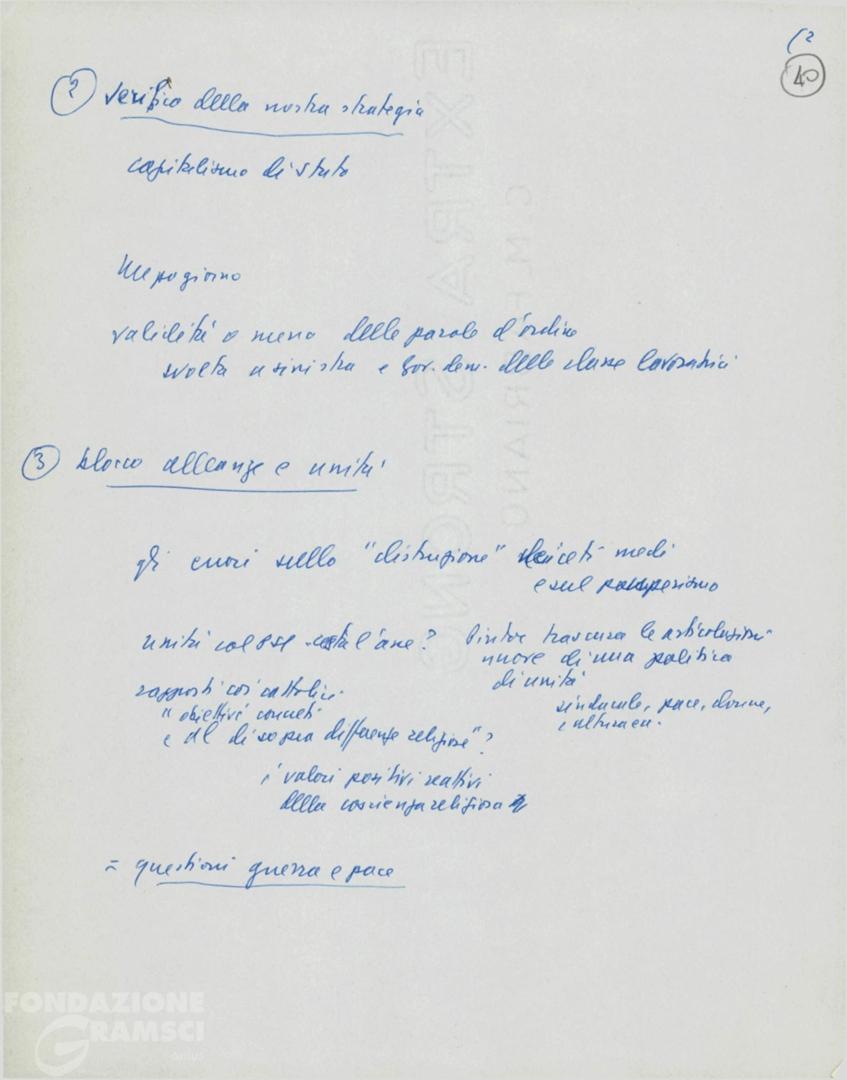 (2
40
2 verifica della nostra strategia
capitalismo di stato
Mezzogiorno
validità o meno delle parole d'ordine
svolta a sinistra e Gov. dem. delle classi lavoratrici
3 blocco alleanze e unità
gli errori sulla "distruzione" dei ceti medi
e sul pauperismo
unità col PSI l'asse? Pintor trascura le articolazioni
nuove di una politica
di unità
sindacale, pace, donne,
cultura ecc.
rapporti coi cattolici
"obiettivi concreti
e al di sopra differenze religiose"?
i valori positivi reattivi
della coscienza religiosa
= questioni guerra e pace
EXTRA STRONG
C.M.F. FABRIANO
FONDAZIONE
GRAMSCI
onlus